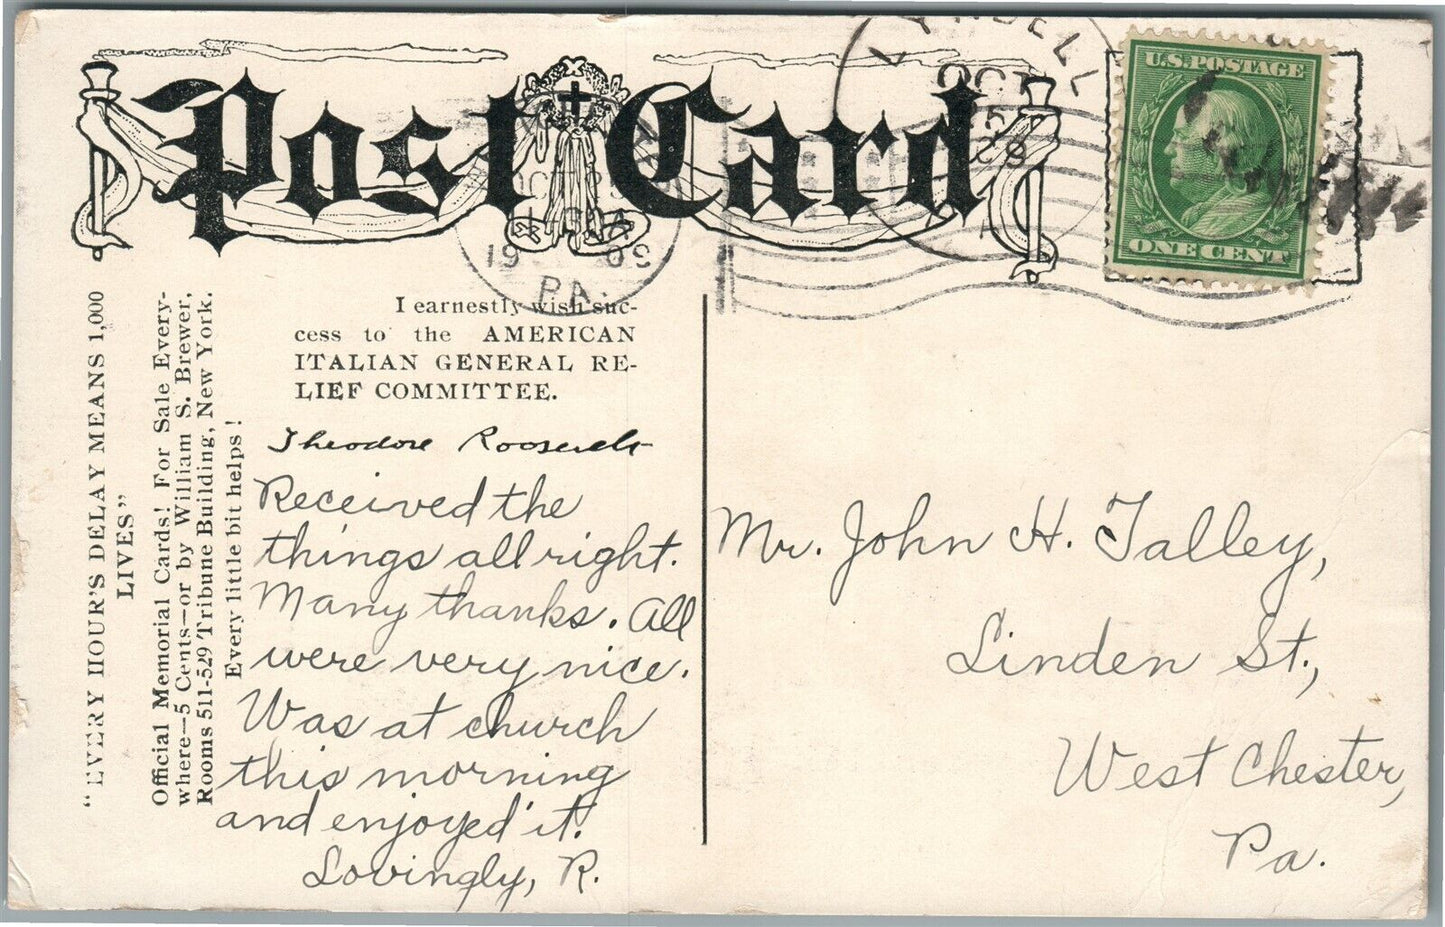 Post Card
LYNDELL
OCT
U.S. POSTAGE
ONE CENT
OCT
19 09
PA.
"EVERY HOUR'S DELAY MEANS 1,000
LIVES"
Official Memorial Cards! For Sale Every-
where—5 Cents—or by William S. Brewer,
Rooms 511-529 Tribune Building, New York.
Every little bit helps!
I earnestly wish suc-
cess to the AMERICAN
ITALIAN GENERAL RE-
LIEF COMMITTEE.
Theodore Roosevelt
Received the
things all right.
Many thanks. All
were very nice.
Was at church
this morning
and enjoyed it.
Lovingly, R.
Mr. John H. Talley,
Linden St.,
West Chester,
Pa.